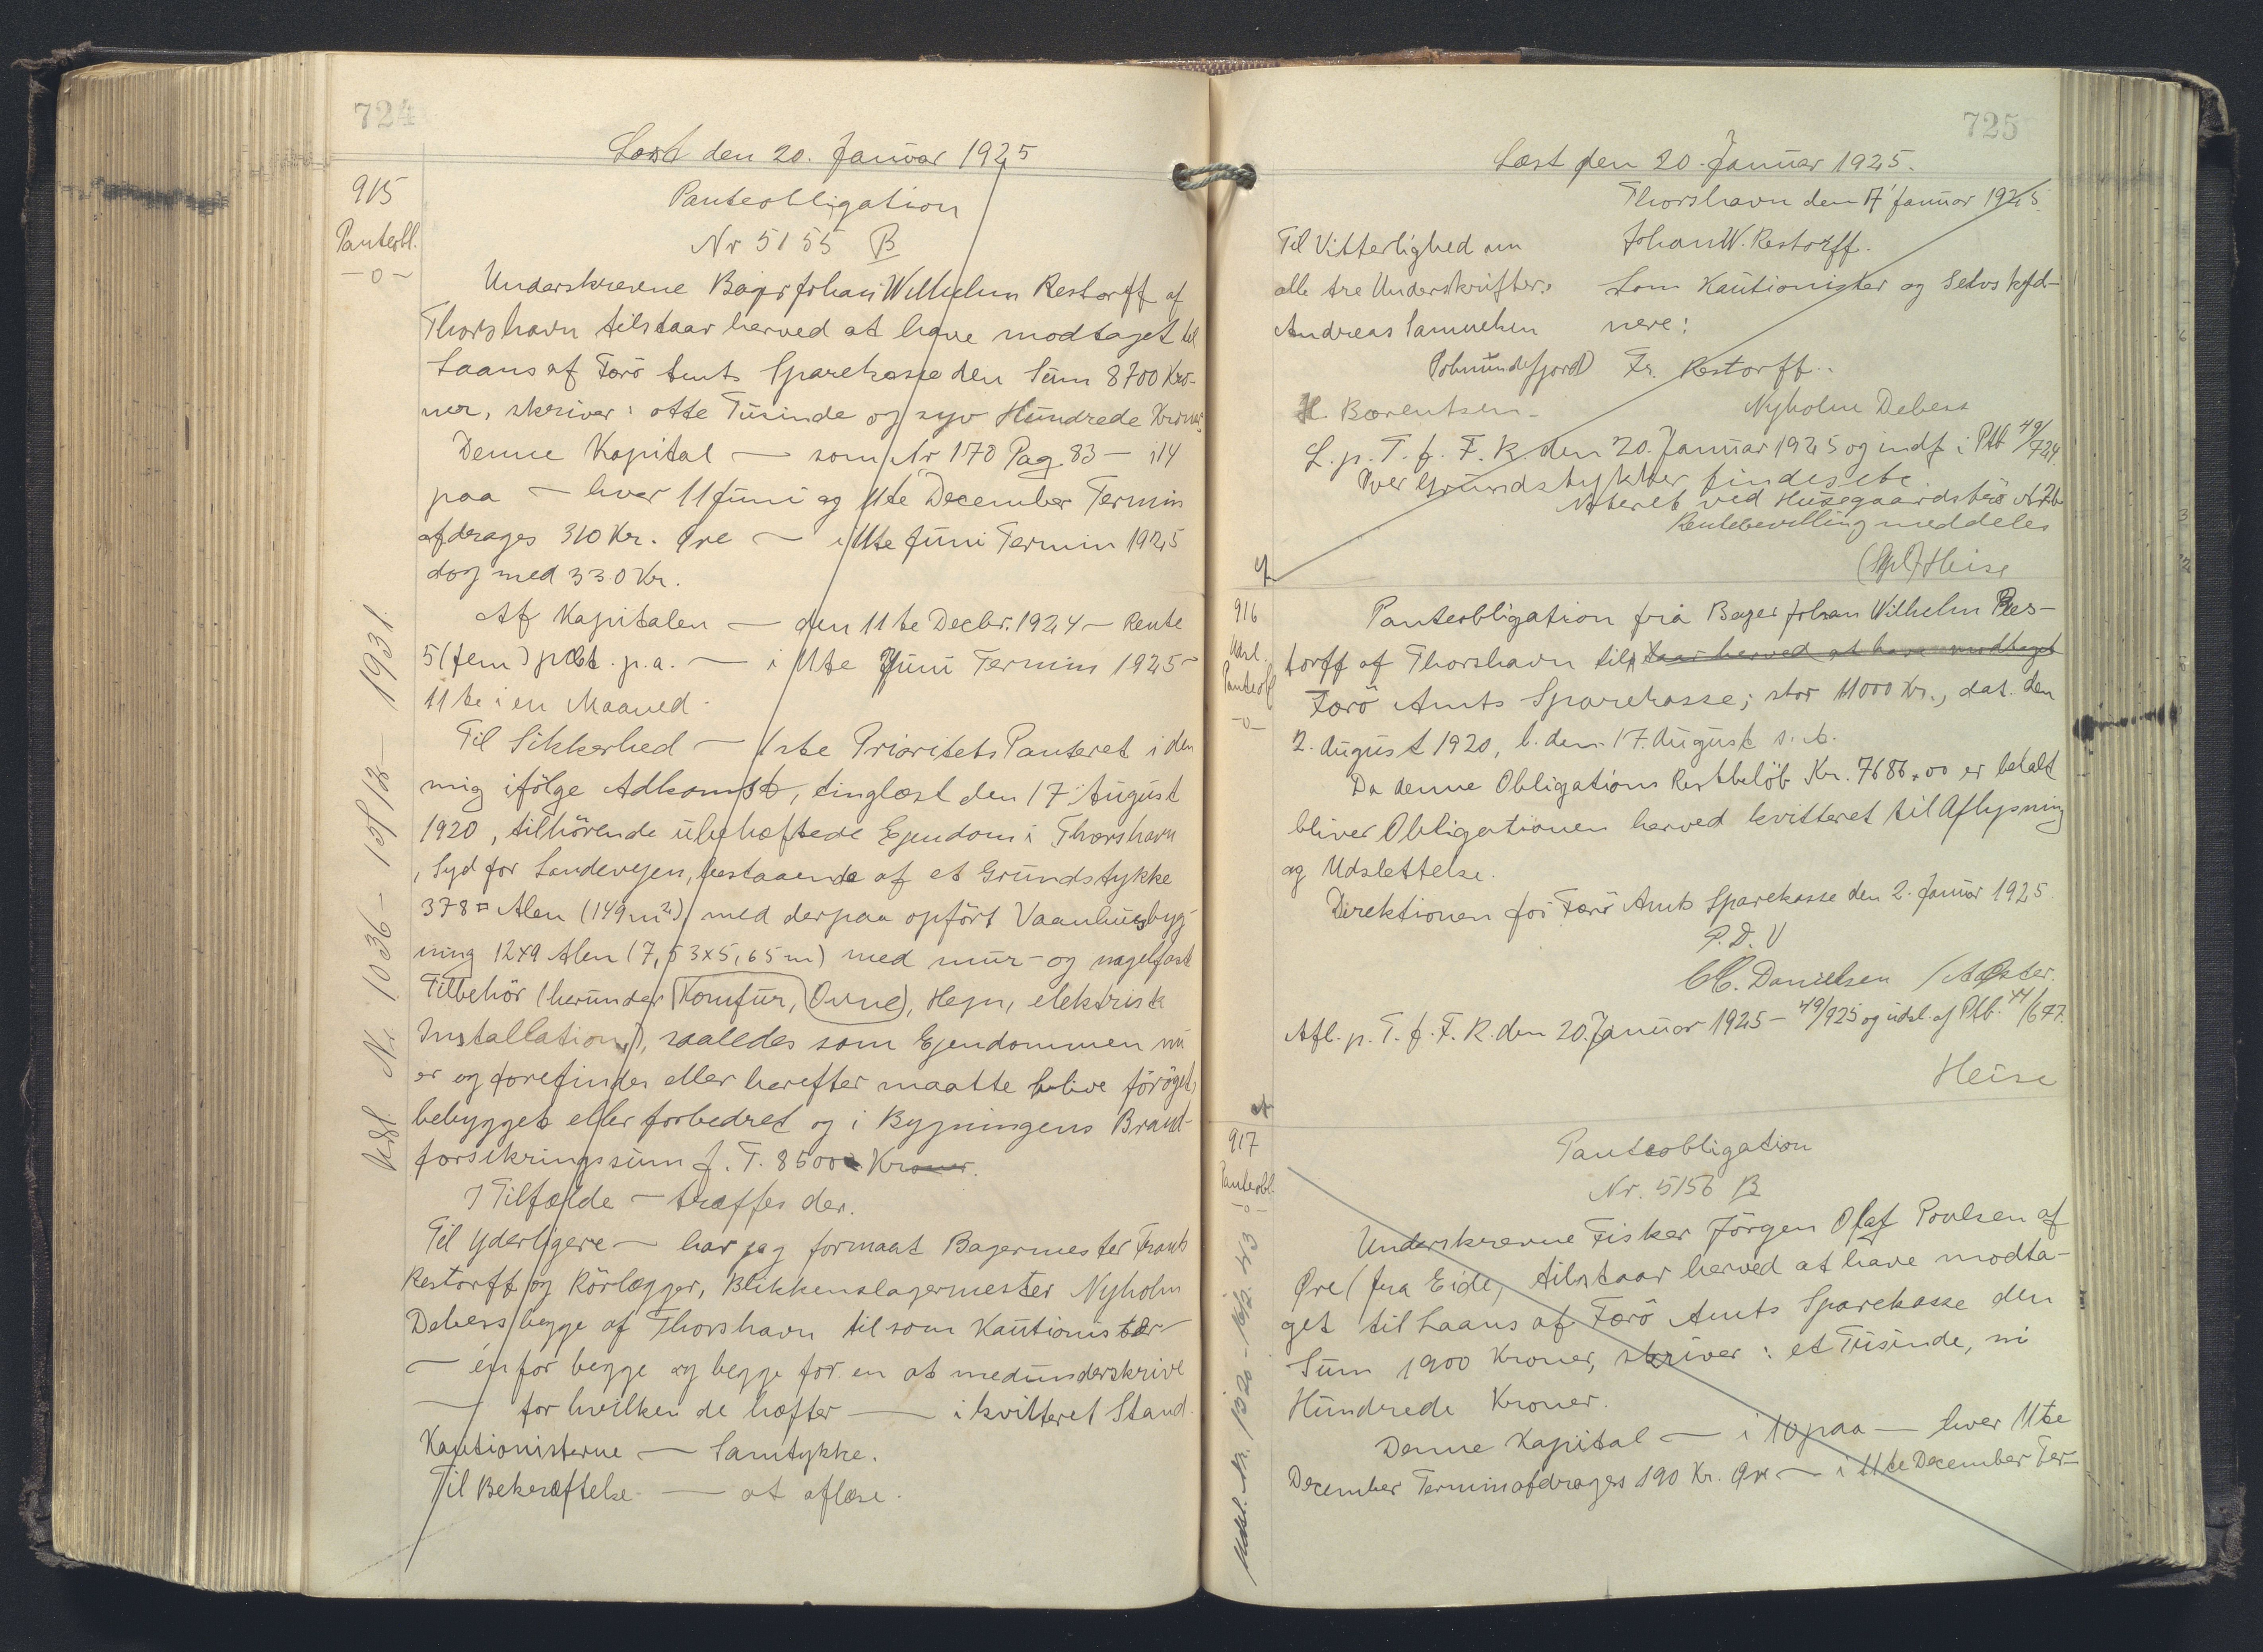 724
Læst den 20. Januar 1925
915
Panteobl.
-o-
Panteobligation
Nr 5155 B
Underskrevne Bager Johan Wilhelm Restorff af
Thorshavn tilstaar herved at have modtaget til
Laans af Færö Amts Sparekasse den Sum 8700 Kro-
ner, skriver: otte Tusinde og syv Hundrede Kroner.
Denne Kapital — som Nr 170 Pag. 83 — i 14
paa — hver 11 Juni og 11te December Termin
afdrages 310 Kr. Øre — i 11te Juni Termin 1925
dog med 330 Kr.
Af Kapitalen — den 11te Decbr. 1924 — Rente
5 (fem) pCt. p.a. — i 11te Juni Termin 1925 -
11te i en Maaned.
Til Sikkerhed — 1ste Prioritets Panteret i den
mig ifölge Adkomst, tinglæst den 17 August
1920, tilhörende ubehæftede Ejendom i Thorshavn
, Syd for Landevejen, bestaaende af et Grundstykke
378 □ Alen (149 m²), med derpaa opfört Vaanhusbyg-
ning 12x9 Alen (7,53x5,65 m) med mur- og nagelfast
Tilbehör (herunder Komfur, Ovne), Hegn, elektrisk
Installation), saaledes som Ejendommen nu
er og forefindes eller herefter maatte blive föröget,
bebygget eller forbedret og i Bygningens Brand-
forsikringssum f. T. 8500 Kroner.
I Tilfælde — træffes der.
Til Yderligere — har jeg formaat Bagermester Frants
Restorff og Rörlægger, Blikkenslagermester Nyholm
Debess begge af Thorshavn til som Kautionister —
— én for begge og begge for en at medunderskrive
— for hvilken de hæfter — i kvitteret Stand.
Kautionisterne — Samtykke.
Til Bekræftelse — at aflæse.
Udsl. Nr. 1036 - 1931
725
Læst den 20. Januar 1925.
Thorshavn den 17 Januar 1925.
Til Vitterlighed om Johan W. Restorff.
alle tre Underskrifter: Som Kautionister og Selvskyld-
Andreas Samuelsen nere:
Fr. Restorff.
H. Bærentsen. Nyholm Debess
L. p. T. f. F. R. den 20. Januar 1925 og indf. i Ptb 49/724.
Over Grundstykket findes ete
Noteret ved Husegaardsbrö
Rentebevilling meddeles
Heise
916
Udsl.
Panteobl
-o-
Panteobligation fra Bager Johan Wilhelm Res-
torff af Thorshavn til taar herved at have modtaget
Færö Amts Sparekasse; stor 11000 Kr., dat. den
2. August 1920, l. den 17. August s. A.
Da denne Obligations Restbelöb Kr. 7686,00 er betalt
bliver Obligationen herved kvitteret til Aflysning
og Udslettelse.
Direktionen for Færö Amts Sparekasse den 2. Januar 1925
P. D. V
C.C. Danielsen / A Øster.
Afl. p. T. f. F. R. den 20. Januar 1925 - 49/725 og udsl. af Ptb. 44/647.
Heise
917
Panteobl.
-o-
Panteobligation
Nr. 5156 B
Underskrevne Fisker Jörgen Olaf Poulsen af
Øre (fra Eide, tilstaar herved at have modta-
get til Laans af Færö Amts Sparekasse den
Sum 1900 Kroner, skriver: et Tusinde, ni
Hundrede Kroner.
Denne Kapital — i 10 paa — hver 11te
December Termin afdrages 190 Kr. Øre — i 11te December Ter-
Udsl. Nr. 1320 - 16/2. 43